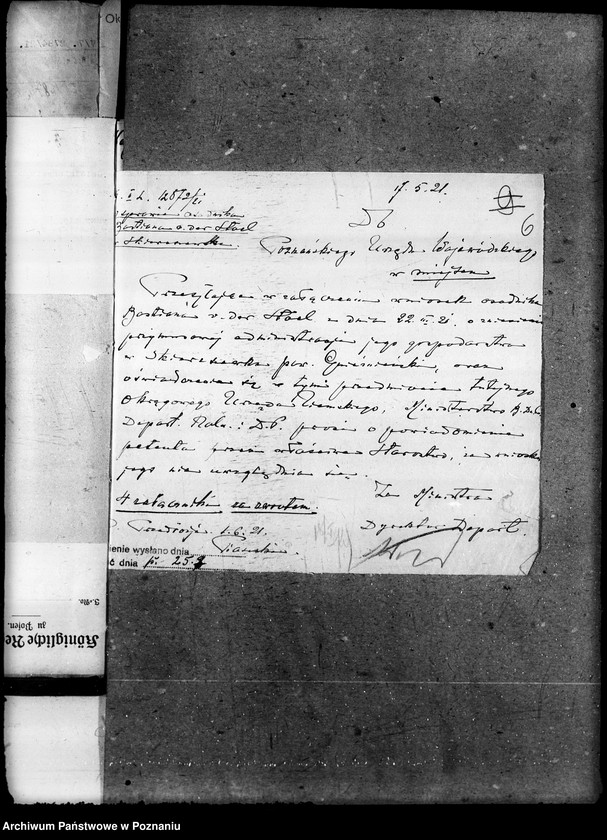 Ok
17.5.21.
I L. 12872/21
w sprawie osadnika
Bastiana v. der Stael
Skiereszewka
Db
6
Poznańskiego Urzęd. Wojewódzkiego
w miejscu
Przesyłając w załączeniu wniosek osadnika
Bastiana v. der Stael z dnia 22 21 o zniesienie
przymusowej administracji jego gospodarstwa
w Skiereszewka pow. Gnieźnieński, oraz
oświadczenie się w tym przedmiocie tutejszego
Okręgowego Urzędu Ziemskiego, Ministerstwo
Depart. Roln. i D.P. prosi o powiadomienie
petenta przez właściwe Starostwo, że wniosku
jego nie uwzględnia się.
4 załączniki za zwrotem.
Za Ministra
Dyrektor Depart.
1.6.21.
enie wysłano dnia
ć dnia 25.
J.-Nr.
zu Posen.
Königliche Re
Archiwum Państwowe w Poznaniu